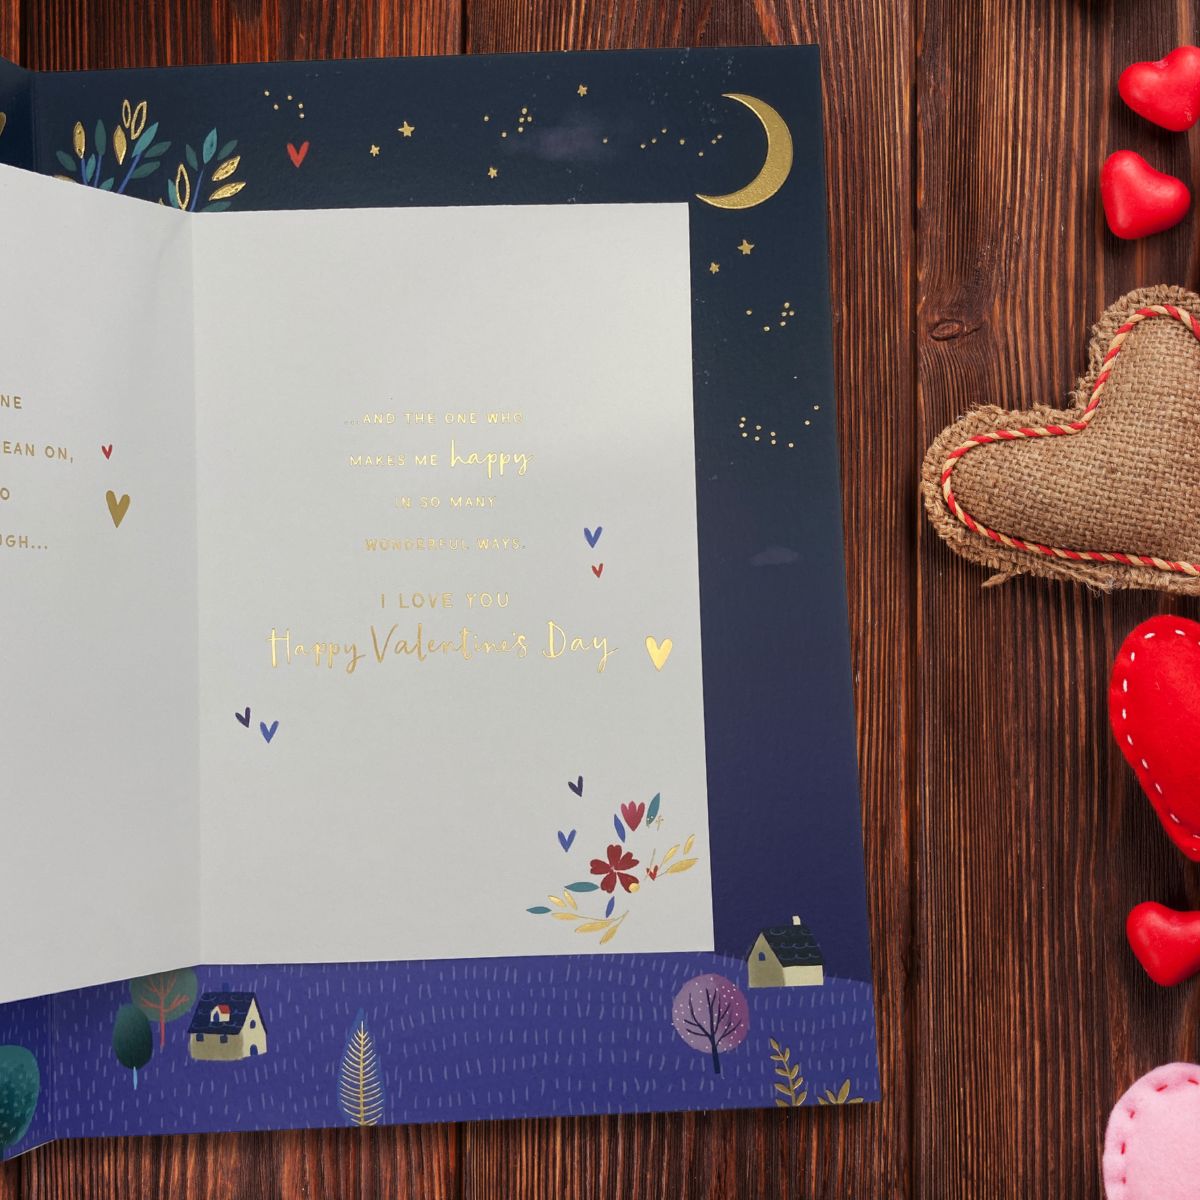 NE
EAN ON,
O
UGH...
...AND THE ONE WHO
MAKES ME happy
IN SO MANY
WONDERFUL WAYS.
I LOVE YOU
Happy Valentine's Day